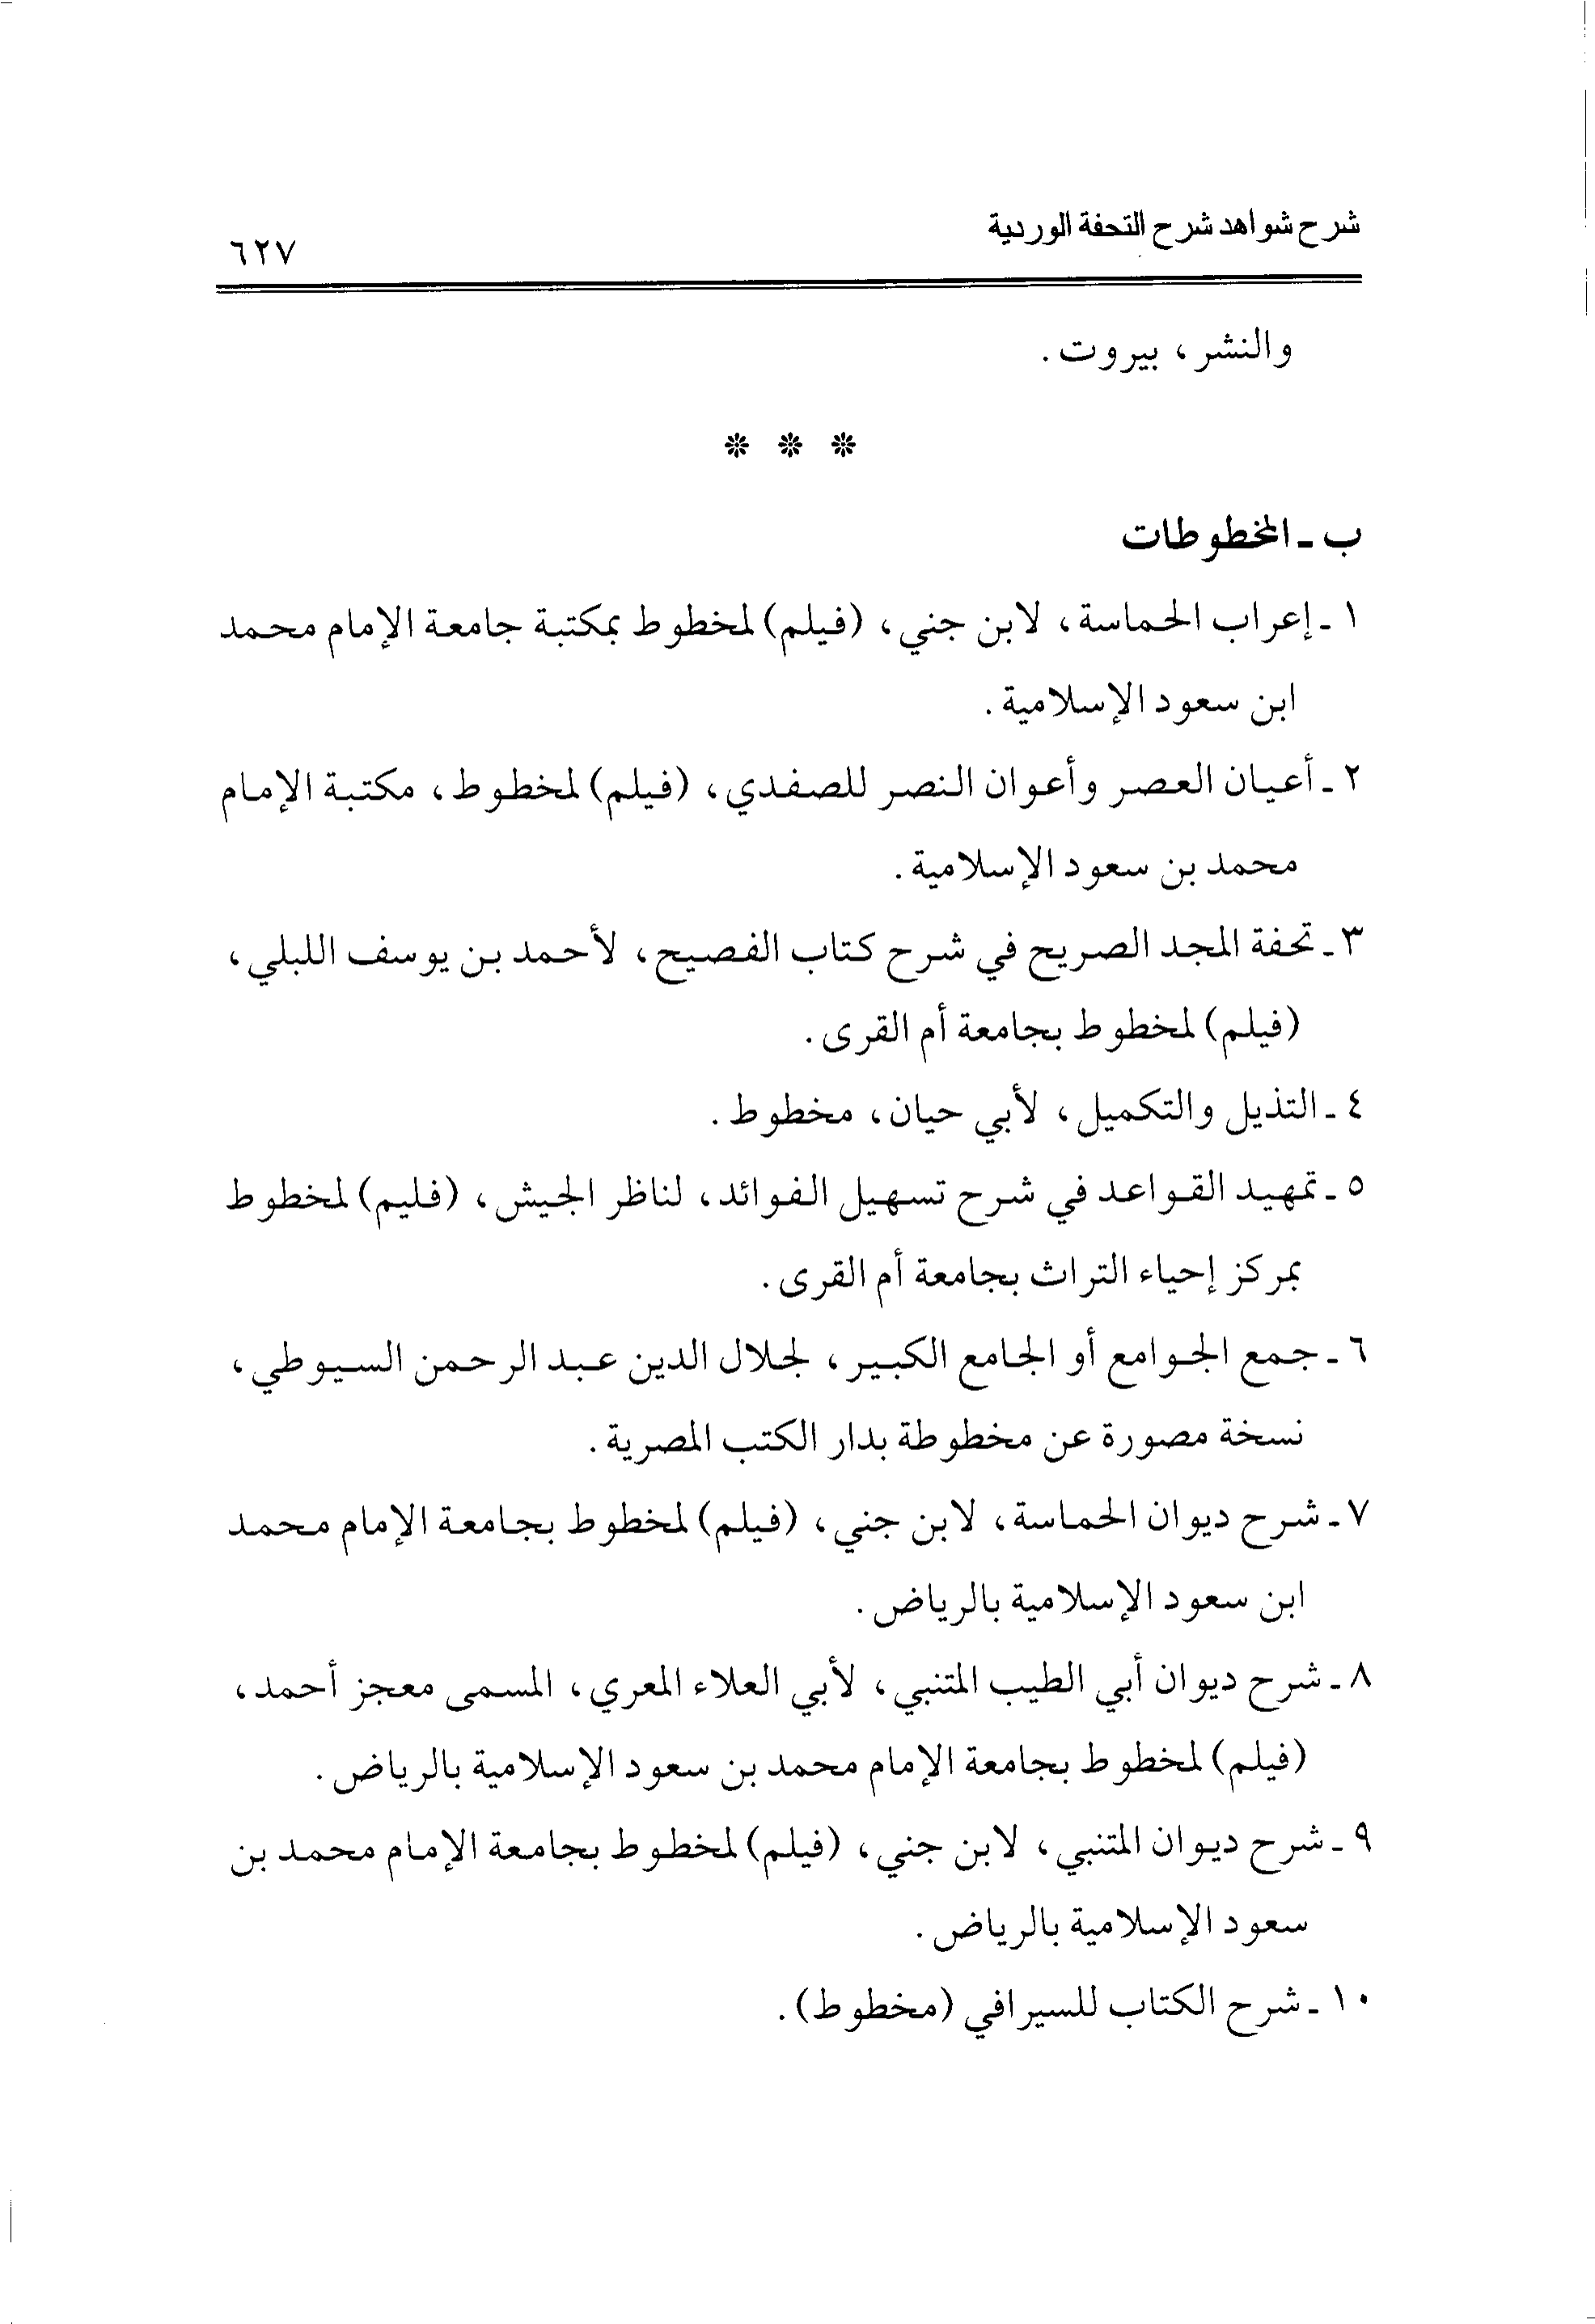 شرح شواهد شرح التحفة الوردية
٦٢٧
والنشر، بيروت.
* * *
ب ـ المخطوطات
١ ـ إعراب الحماسة، لابن جني، (فيلم) لمخطوط بمكتبة جامعة الإمام محمد
ابن سعود الإسلامية.
٢ ـ أعيان العصر وأعوان النصر للصفدي، (فيلم) لمخطوط، مكتبة الإمام
محمد بن سعود الإسلامية.
٣ ـ تحفة المجد الصريح في شرح كتاب الفصيح، لأحمد بن يوسف اللبلي،
(فيلم) لمخطوط بجامعة أم القرى.
٤ ـ التذيل والتكميل، لأبي حيان، مخطوط.
٥ ـ تمهيد القواعد في شرح تسهيل الفوائد، لناظر الجيش، (فليم) لمخطوط
بمركز إحياء التراث بجامعة أم القرى.
٦ ـ جمع الجوامع أو الجامع الكبير، لجلال الدين عبد الرحمن السيوطي،
نسخة مصورة عن مخطوطة بدار الكتب المصرية.
٧ ـ شرح ديوان الحماسة، لابن جني، (فيلم) لمخطوط بجامعة الإمام محمد
ابن سعود الإسلامية بالرياض.
٨ ـ شرح ديوان أبي الطيب المتنبي، لأبي العلاء المعري، المسمى معجز أحمد،
(فيلم) لمخطوط بجامعة الإمام محمد بن سعود الإسلامية بالرياض.
٩ ـ شرح ديوان المتنبي، لابن جني، (فيلم) لمخطوط بجامعة الإمام محمد بن
سعود الإسلامية بالرياض.
١٠ ـ شرح الكتاب للسيرافي (مخطوط).